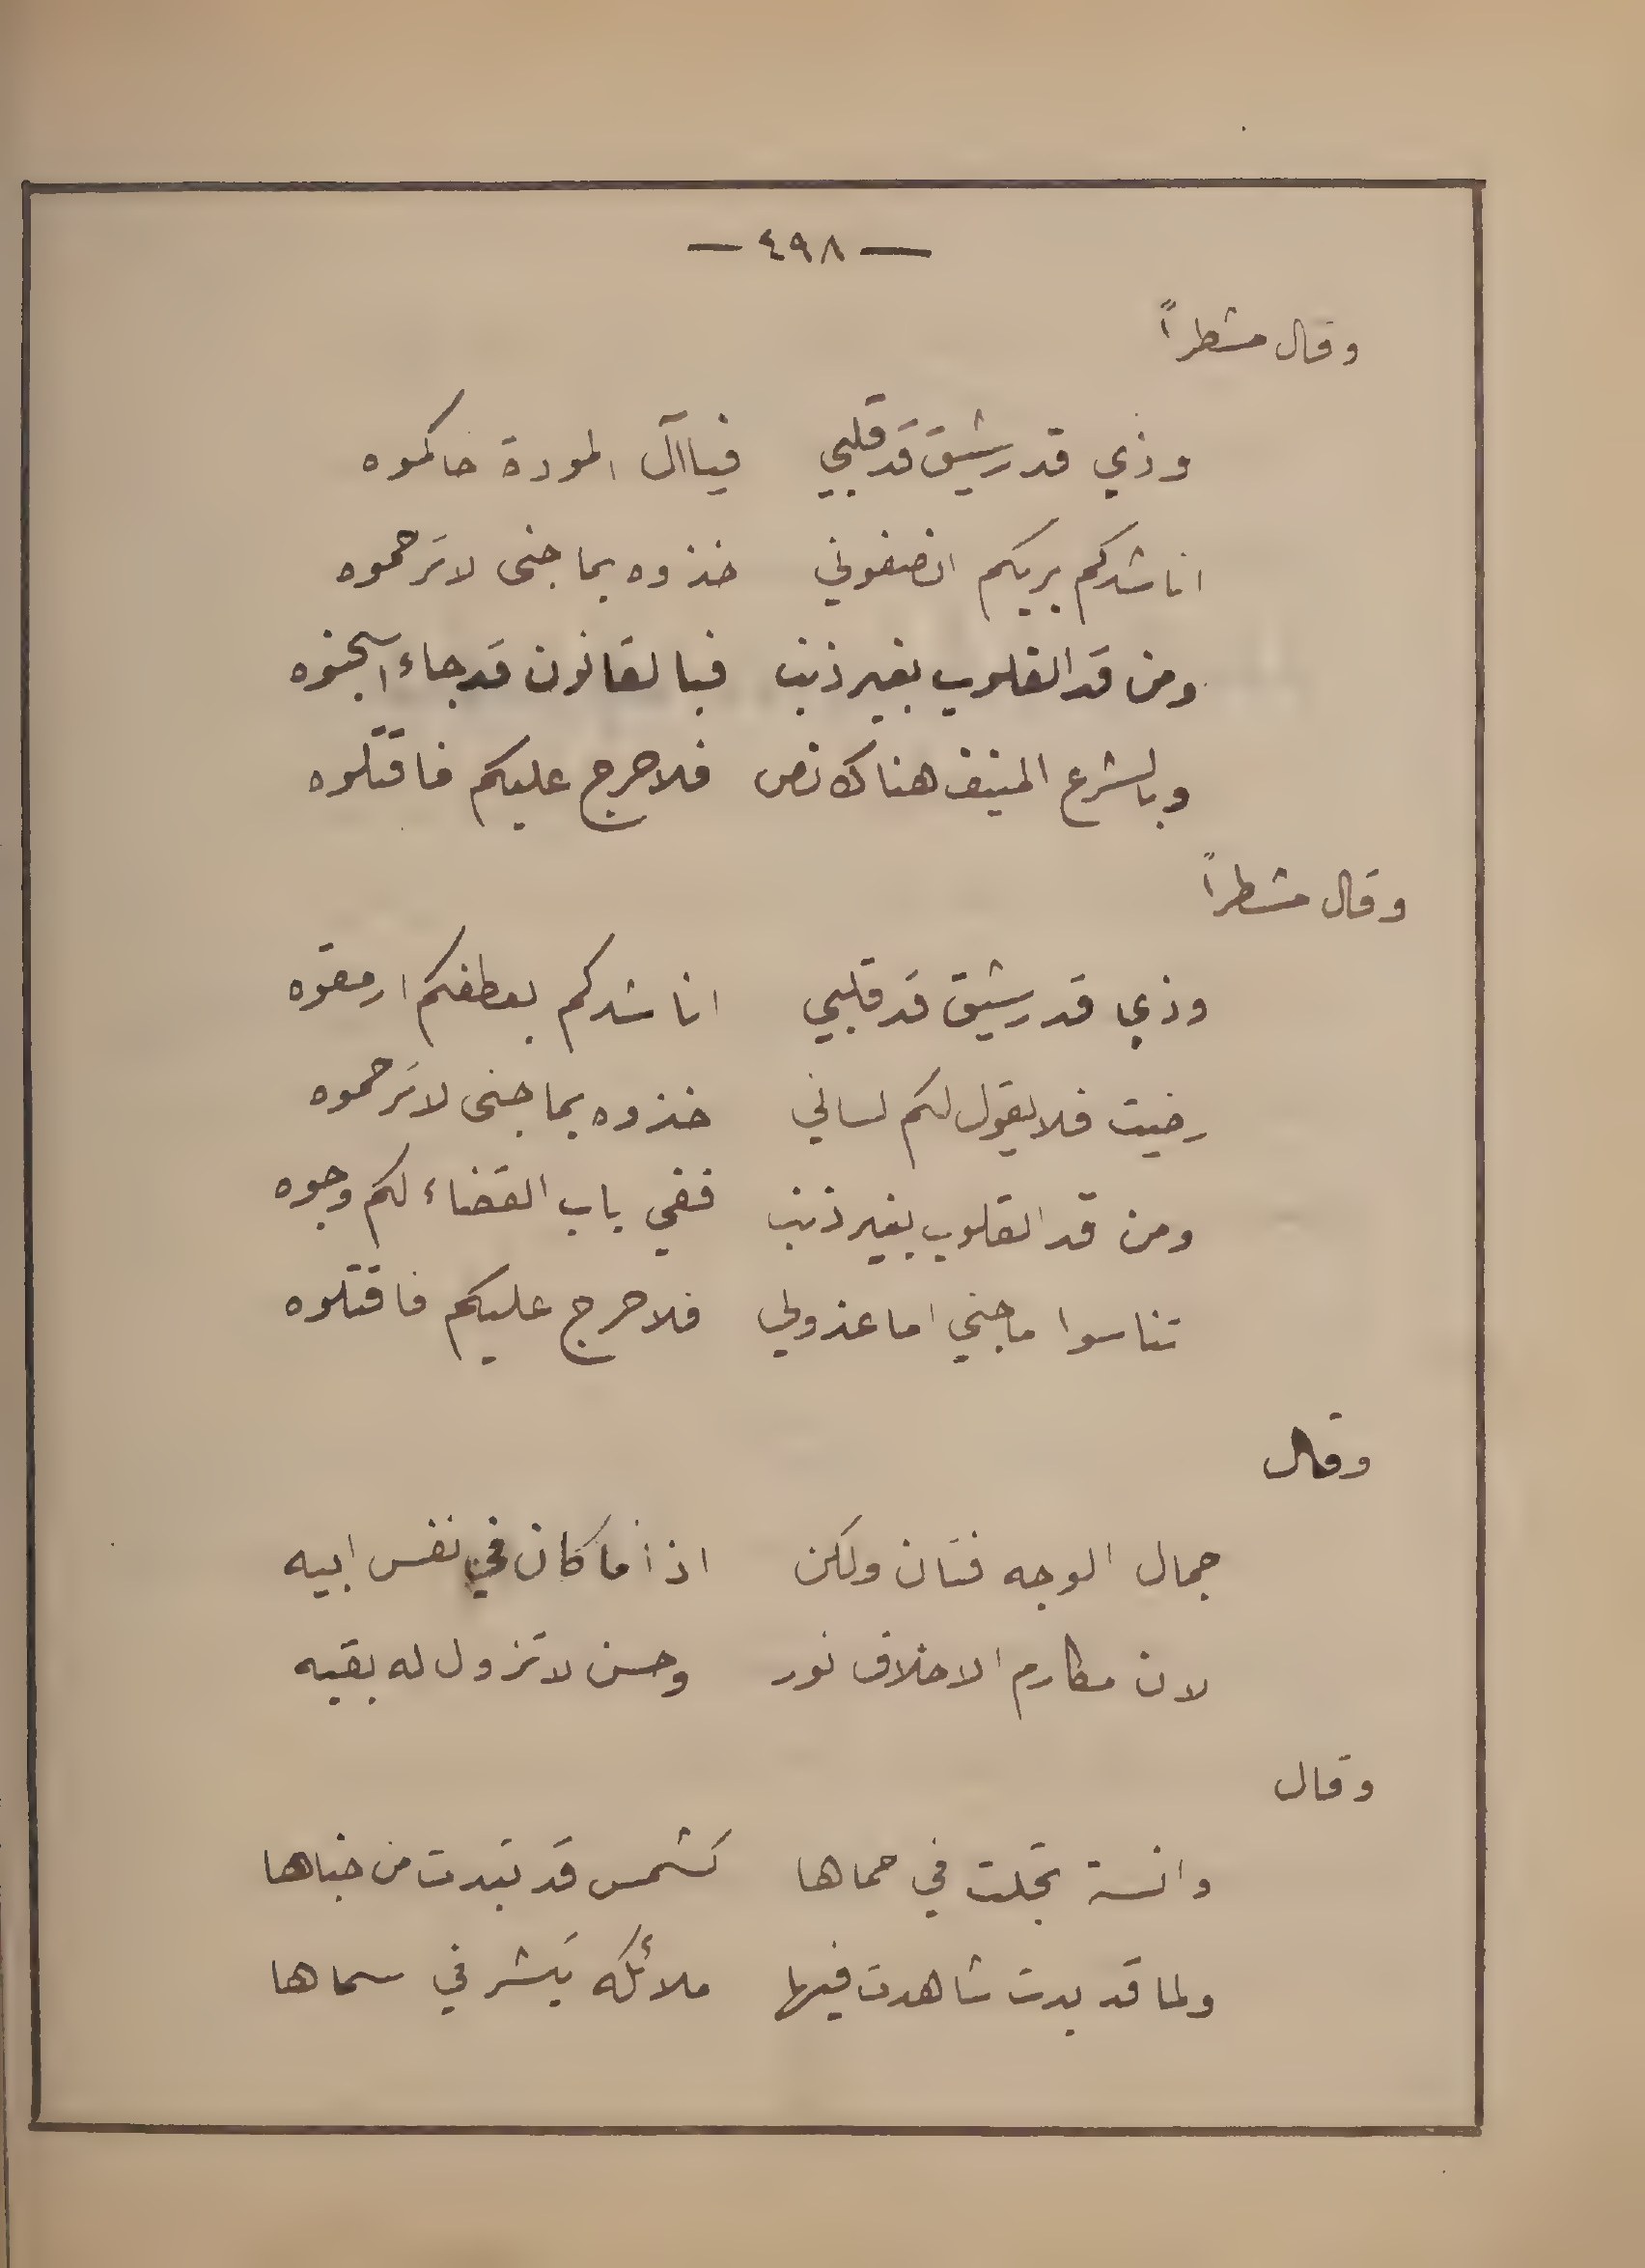 — ٤٩٨ —
وقال مشطراً
وذي قد رشيق قَد قلبي فيا آل المودة حاكموه
اناشدكم بربكم انصفوني خذوه بما جنى لا تَرحموه
ومن قَد القلوب بغير ذنب فبالقانون قد جاء اسجنوه
وبالشرع المنيف هناك نص فلا حرج عليكم فاقتلوه
وقال مشطراً
وذي قد رشيق قَد قلبي اناشدكم بعطفكم ارمقوه
رضيت فلا يقول لكم لساني خذوه بما جنى لا تَرحموه
ومن قد القلوب بغير ذنب ففي باب القضاء لكم وجوه
تناسوا ما جنى اما عذولي فلا حرج عليكم فاقتلوه
وقال
جمال الوجه فتان ولكن اذا ما كان في نفس ابيه
لان مكارم الاخلاق نور وحسن لا تزول له بقيه
وقال
وانسة تجلت في حماها كشمس قد تبدت من خباها
ولما قد بدت شاهدت فيها ملائكه تبشر في سماها